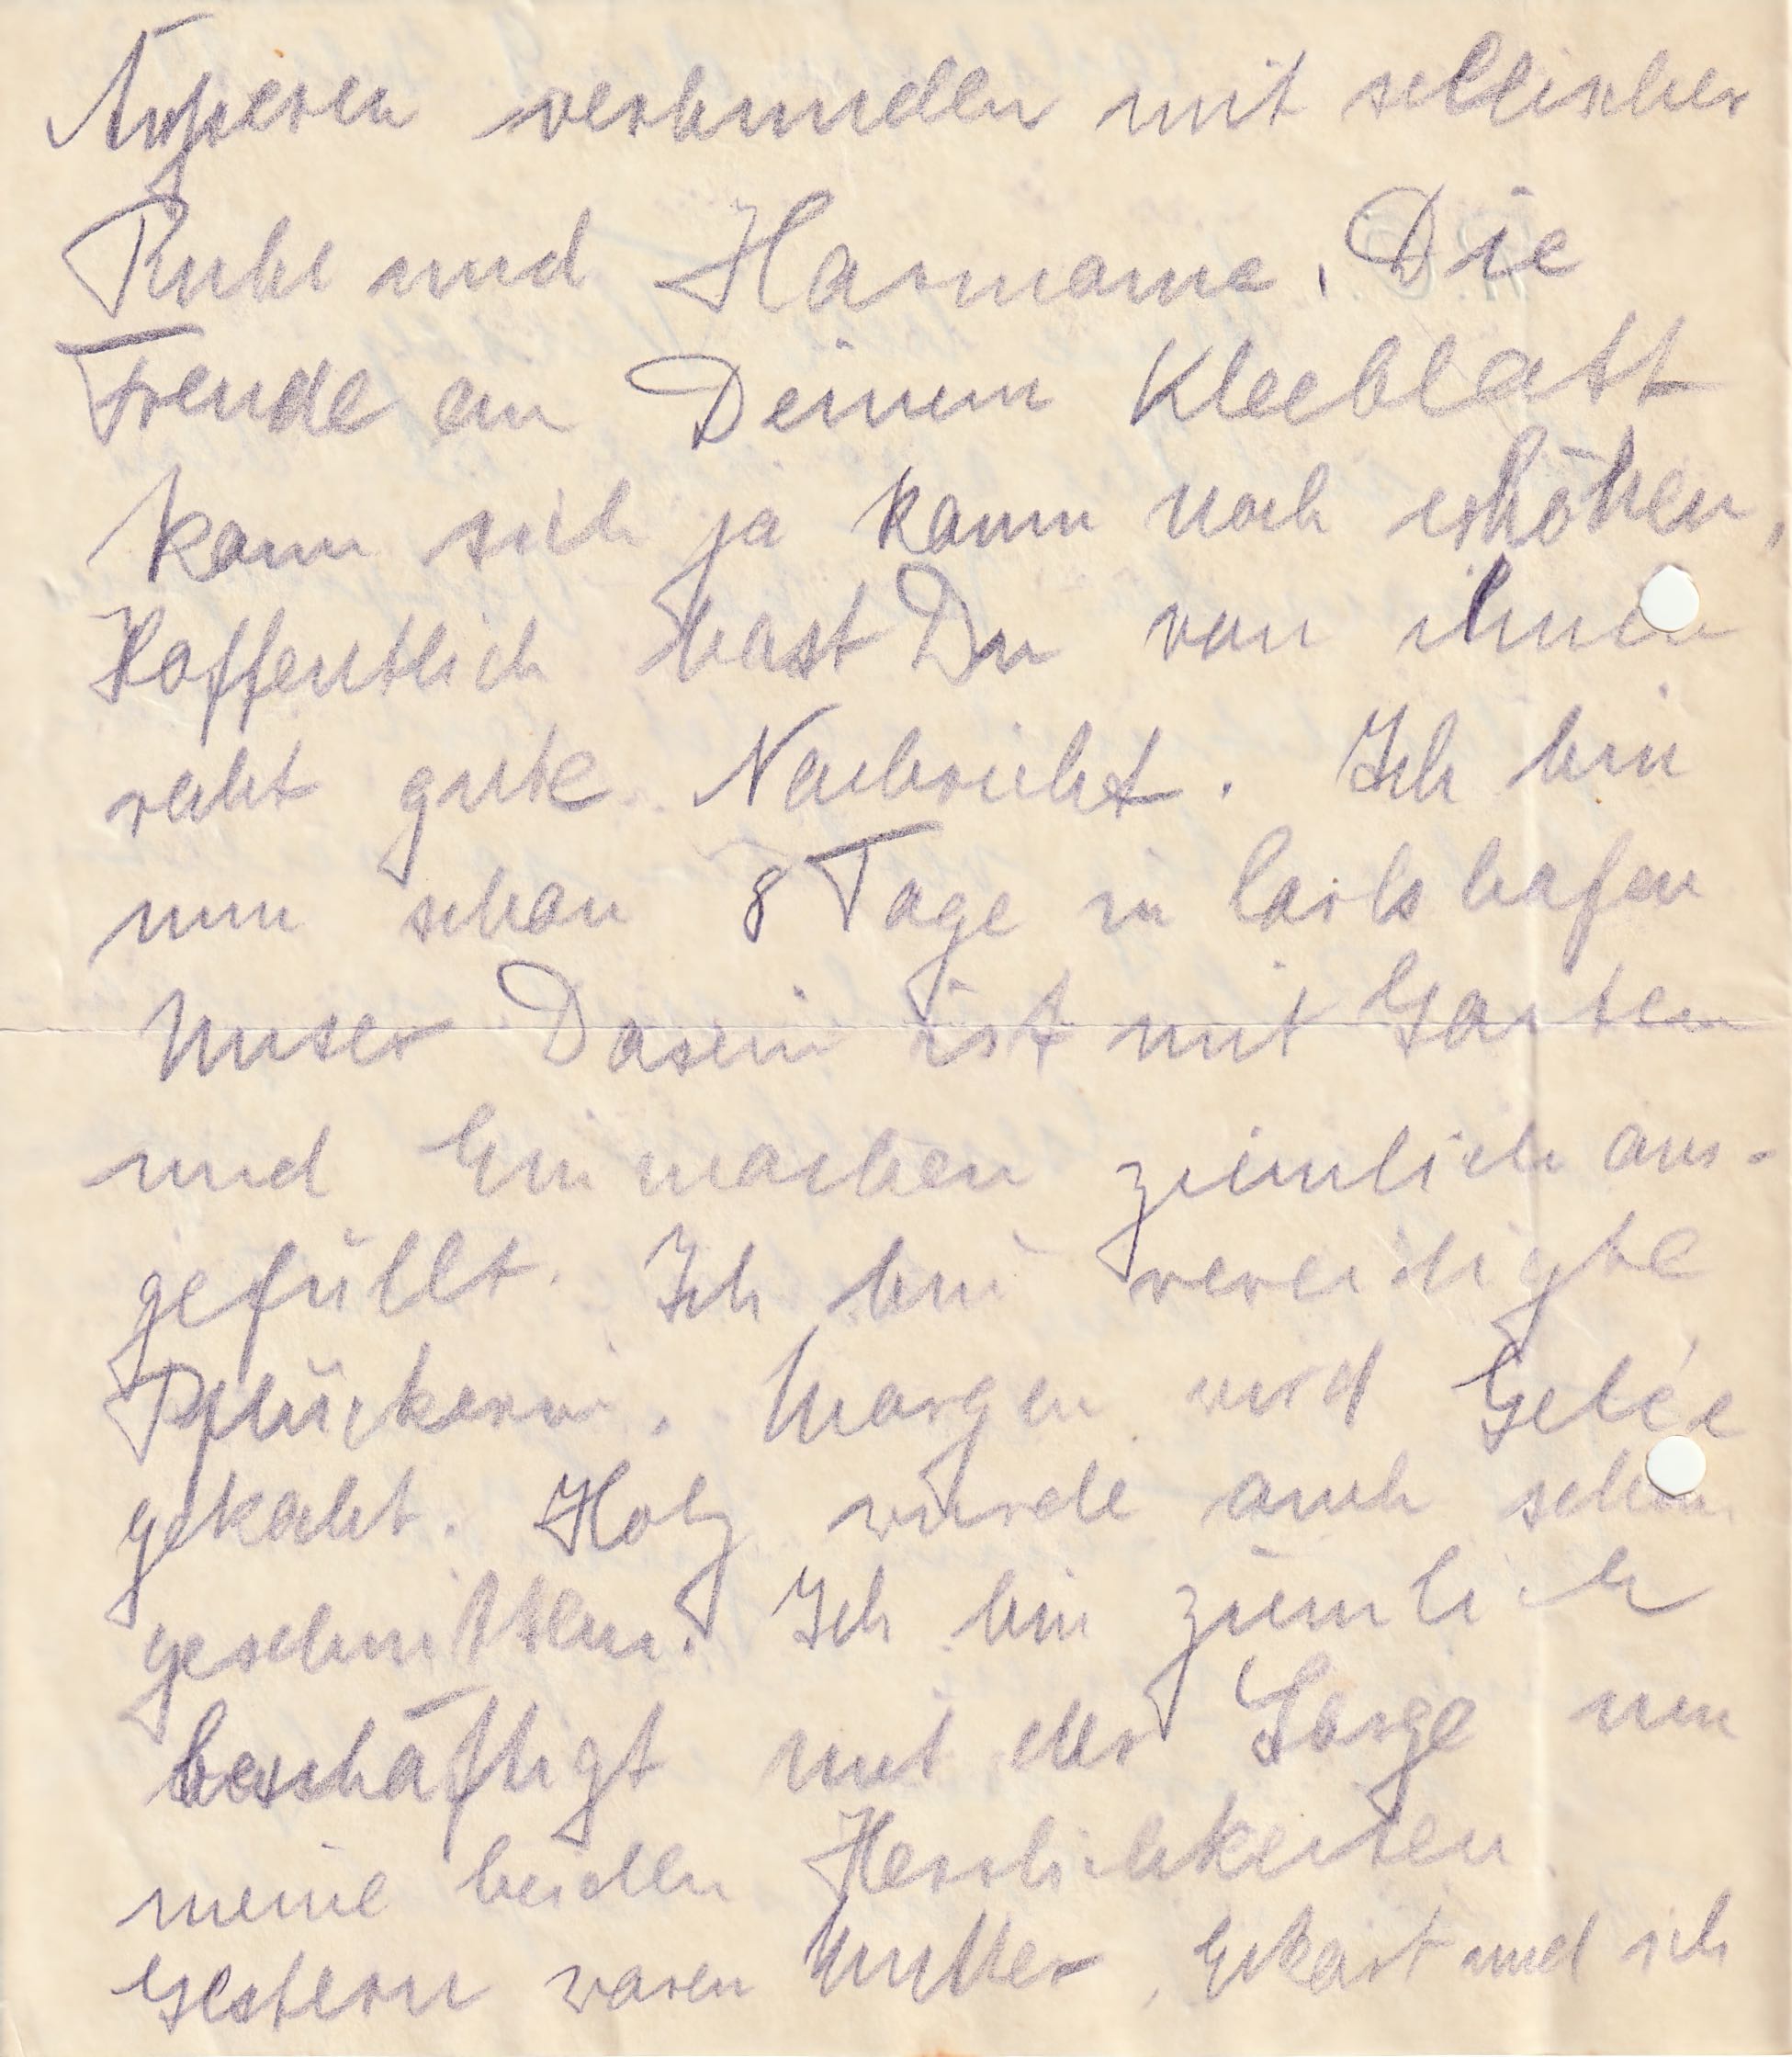 Äußeren verbunden mit seelischer
Ruhe und Harmonie. Die
Freude an Deinem Kleeblatt
kann sich ja kaum noch erhöhen,
Hoffentlich hast Du von ihnen
recht gute Nachricht. Ich bin
nun schon 8 Tage in Carlshafen
Unser Dasein ist mit Garten
und Einmachen ziemlich aus-
gefüllt. Ich bin vereidigte
Pflückerin. Morgen wird Gelée
gekocht. Holz wurde auch schon
geschnitten. Ich bin ziemlich
beschäftigt mit der Sorge um
meine beiden Herrlichkeiten.
Gestern waren Mutter, Eckart und ich